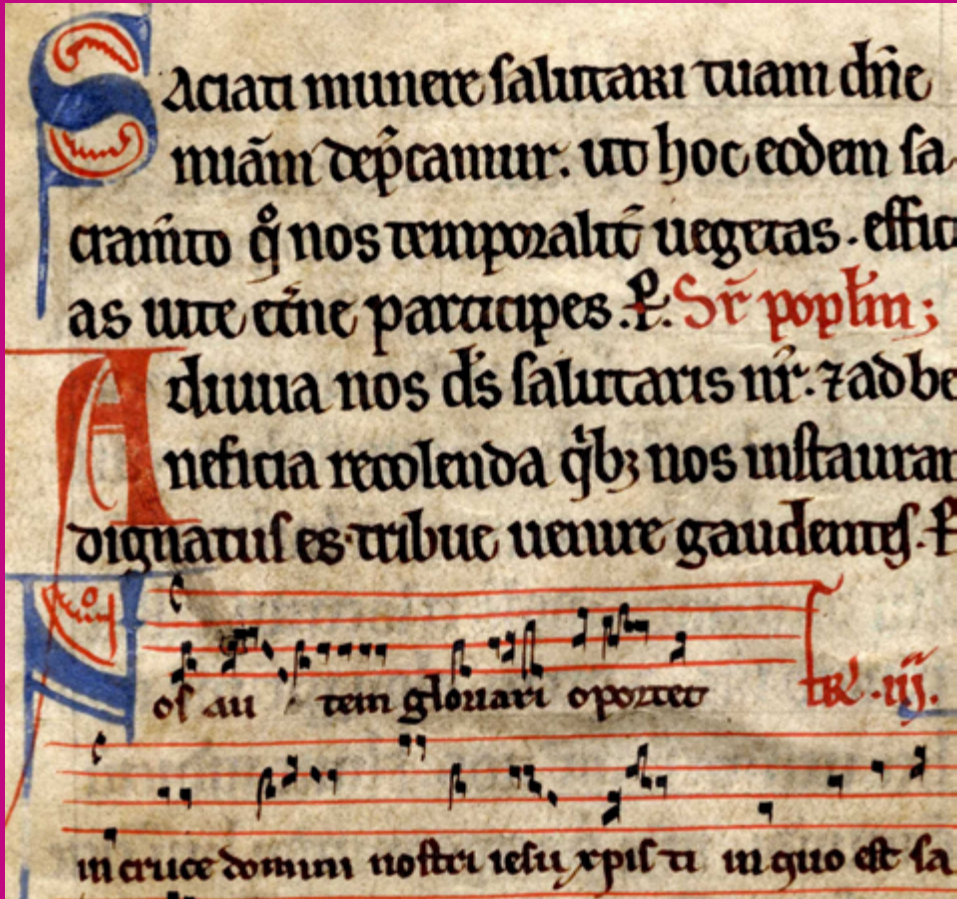 Saciati munere salutari tuam dn̄e
miām dep̄camur. ut hoc eodem sa
cram̄to qͦ nos temporalit̄ uegetas. effici
as uite et̄ne participes. P. Sr̄ popl̄m;
Adiuua nos ds̄ salutaris nr̄. ⁊ ad be
neficia recolenda qⁱbꝫ nos instaurar
dignatus es. tribue uenire gaudentes. P
Nos au tem gloriari oportet
in cruce domini nostri iesu xpis ti in quo est sa